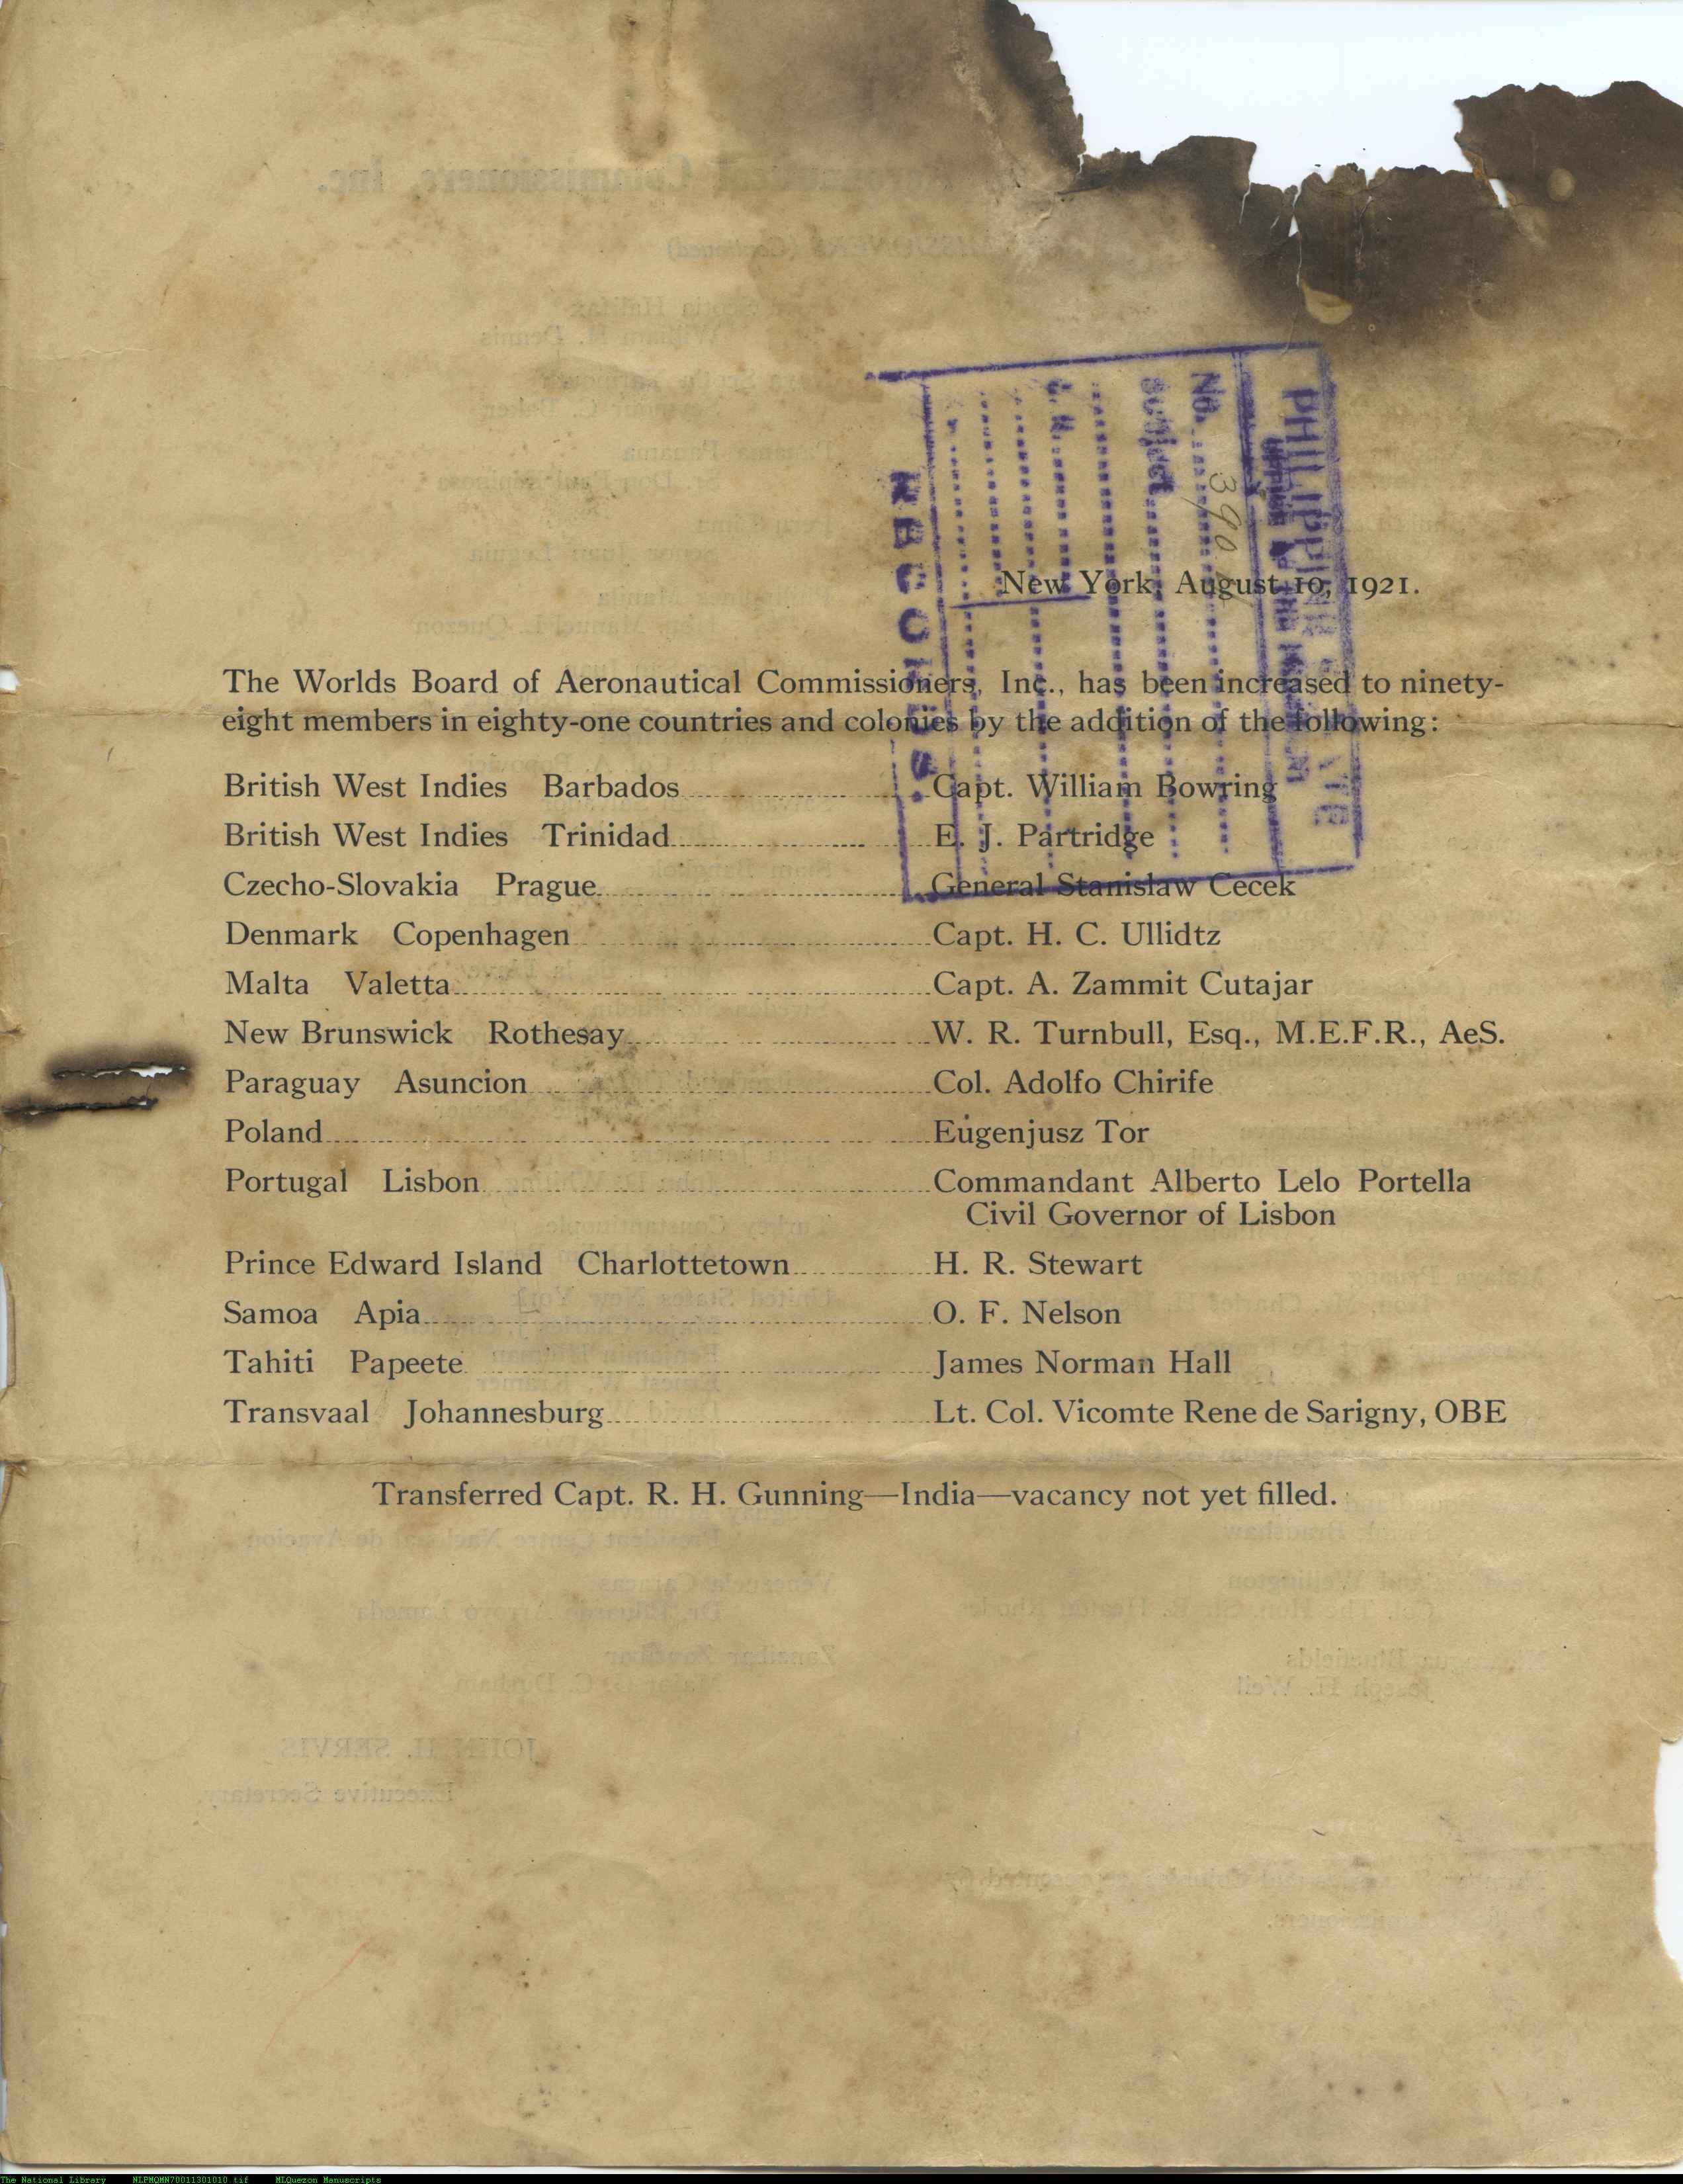 New York, August 10, 1921.
The Worlds Board of Aeronautical Commissioners, Inc., has been increased to ninety-
eight members in eighty-one countries and colonies by the addition of the following:
British West Indies Barbados Capt. William Bowring
British West Indies Trinidad E. J. Partridge
Czecho-Slovakia Prague General Stanislaw Cecek
Denmark Copenhagen Capt. H. C. Ullidtz
Malta Valetta Capt. A. Zammit Cutajar
New Brunswick Rothesay W. R. Turnbull, Esq., M.E.F.R., AeS.
Paraguay Asuncion Col. Adolfo Chirife
Poland Eugenjusz Tor
Portugal Lisbon Commandant Alberto Lelo Portella
Civil Governor of Lisbon
Prince Edward Island Charlottetown H. R. Stewart
Samoa Apia O. F. Nelson
Tahiti Papeete James Norman Hall
Transvaal Johannesburg Lt. Col. Vicomte Rene de Sarigny, OBE
Transferred Capt. R. H. Gunning—India—vacancy not yet filled.
PHILIPPINE
No.
Subject
RECORDS.
The National Library NLPMQMN70011301010.tif MLQuezon Manuscripts